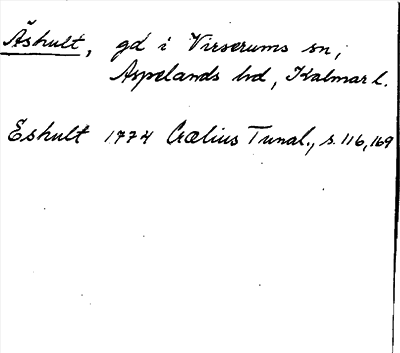 Äshult, gd i Virserums sn,
Aspelands hd, Kalmar l.
Eshult 1774 Crælius Tunal., s. 116, 169